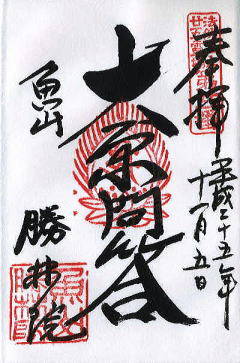 奉拝
平成二十五年
十一月五日
大原問答
魚山
勝林院